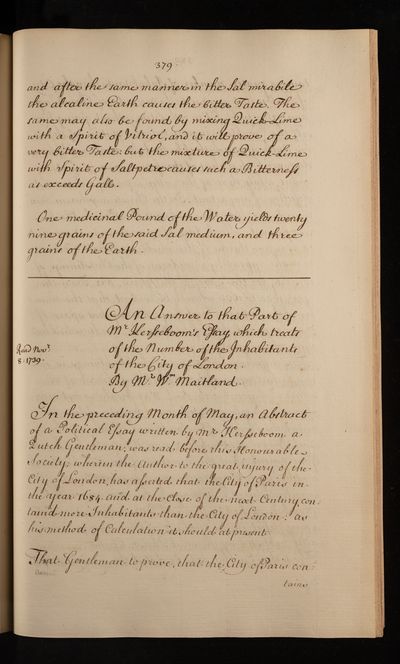 379
and after the same manner in the Sal mirabile
the alcaline Earth causes the bitter Taste. The
same may also be found by mixing Quick-Lime
with a Spirit of Vitriol, and it will prove of a
very bitter Taste: but the mixture of Quick-Lime
with Spirit of Saltpetre causes such a Bitterness
as exceeds Gall.
One medicinal Pound of the Water yields twenty
nine grains of the said Sal medium, and three
grains of the Earth.
An Answer to that Part of
Mr. Kersseboom's Essay, which treats
Read Novr.
of the Number of the Inhabitants
8. 1739.
of the City of London.
By Mr. Wm. Maitland.
In the preceding Month of May, an Abstract
of a Political Essay written by Mr. Kersseboom a
Dutch Gentleman, was read before this Honourable
Society; wherein the Author to the great injury of the
City of London, has asserted that the City of Paris in
the year 1684. and at the close of the next Century con
=tain'd more Inhabitants than the City of London: as
his method of Calculation it should at present.
That Gentleman to prove, that the City of Paris con
tains